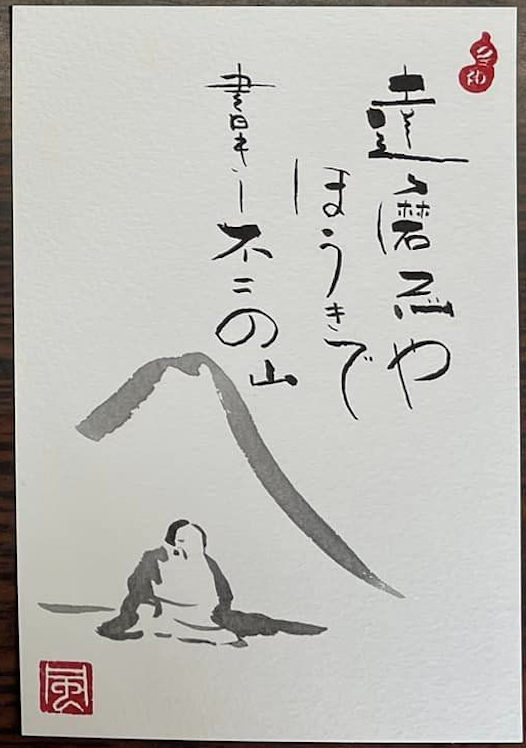 達磨忌や
ほうきで
書きし不二の山
風